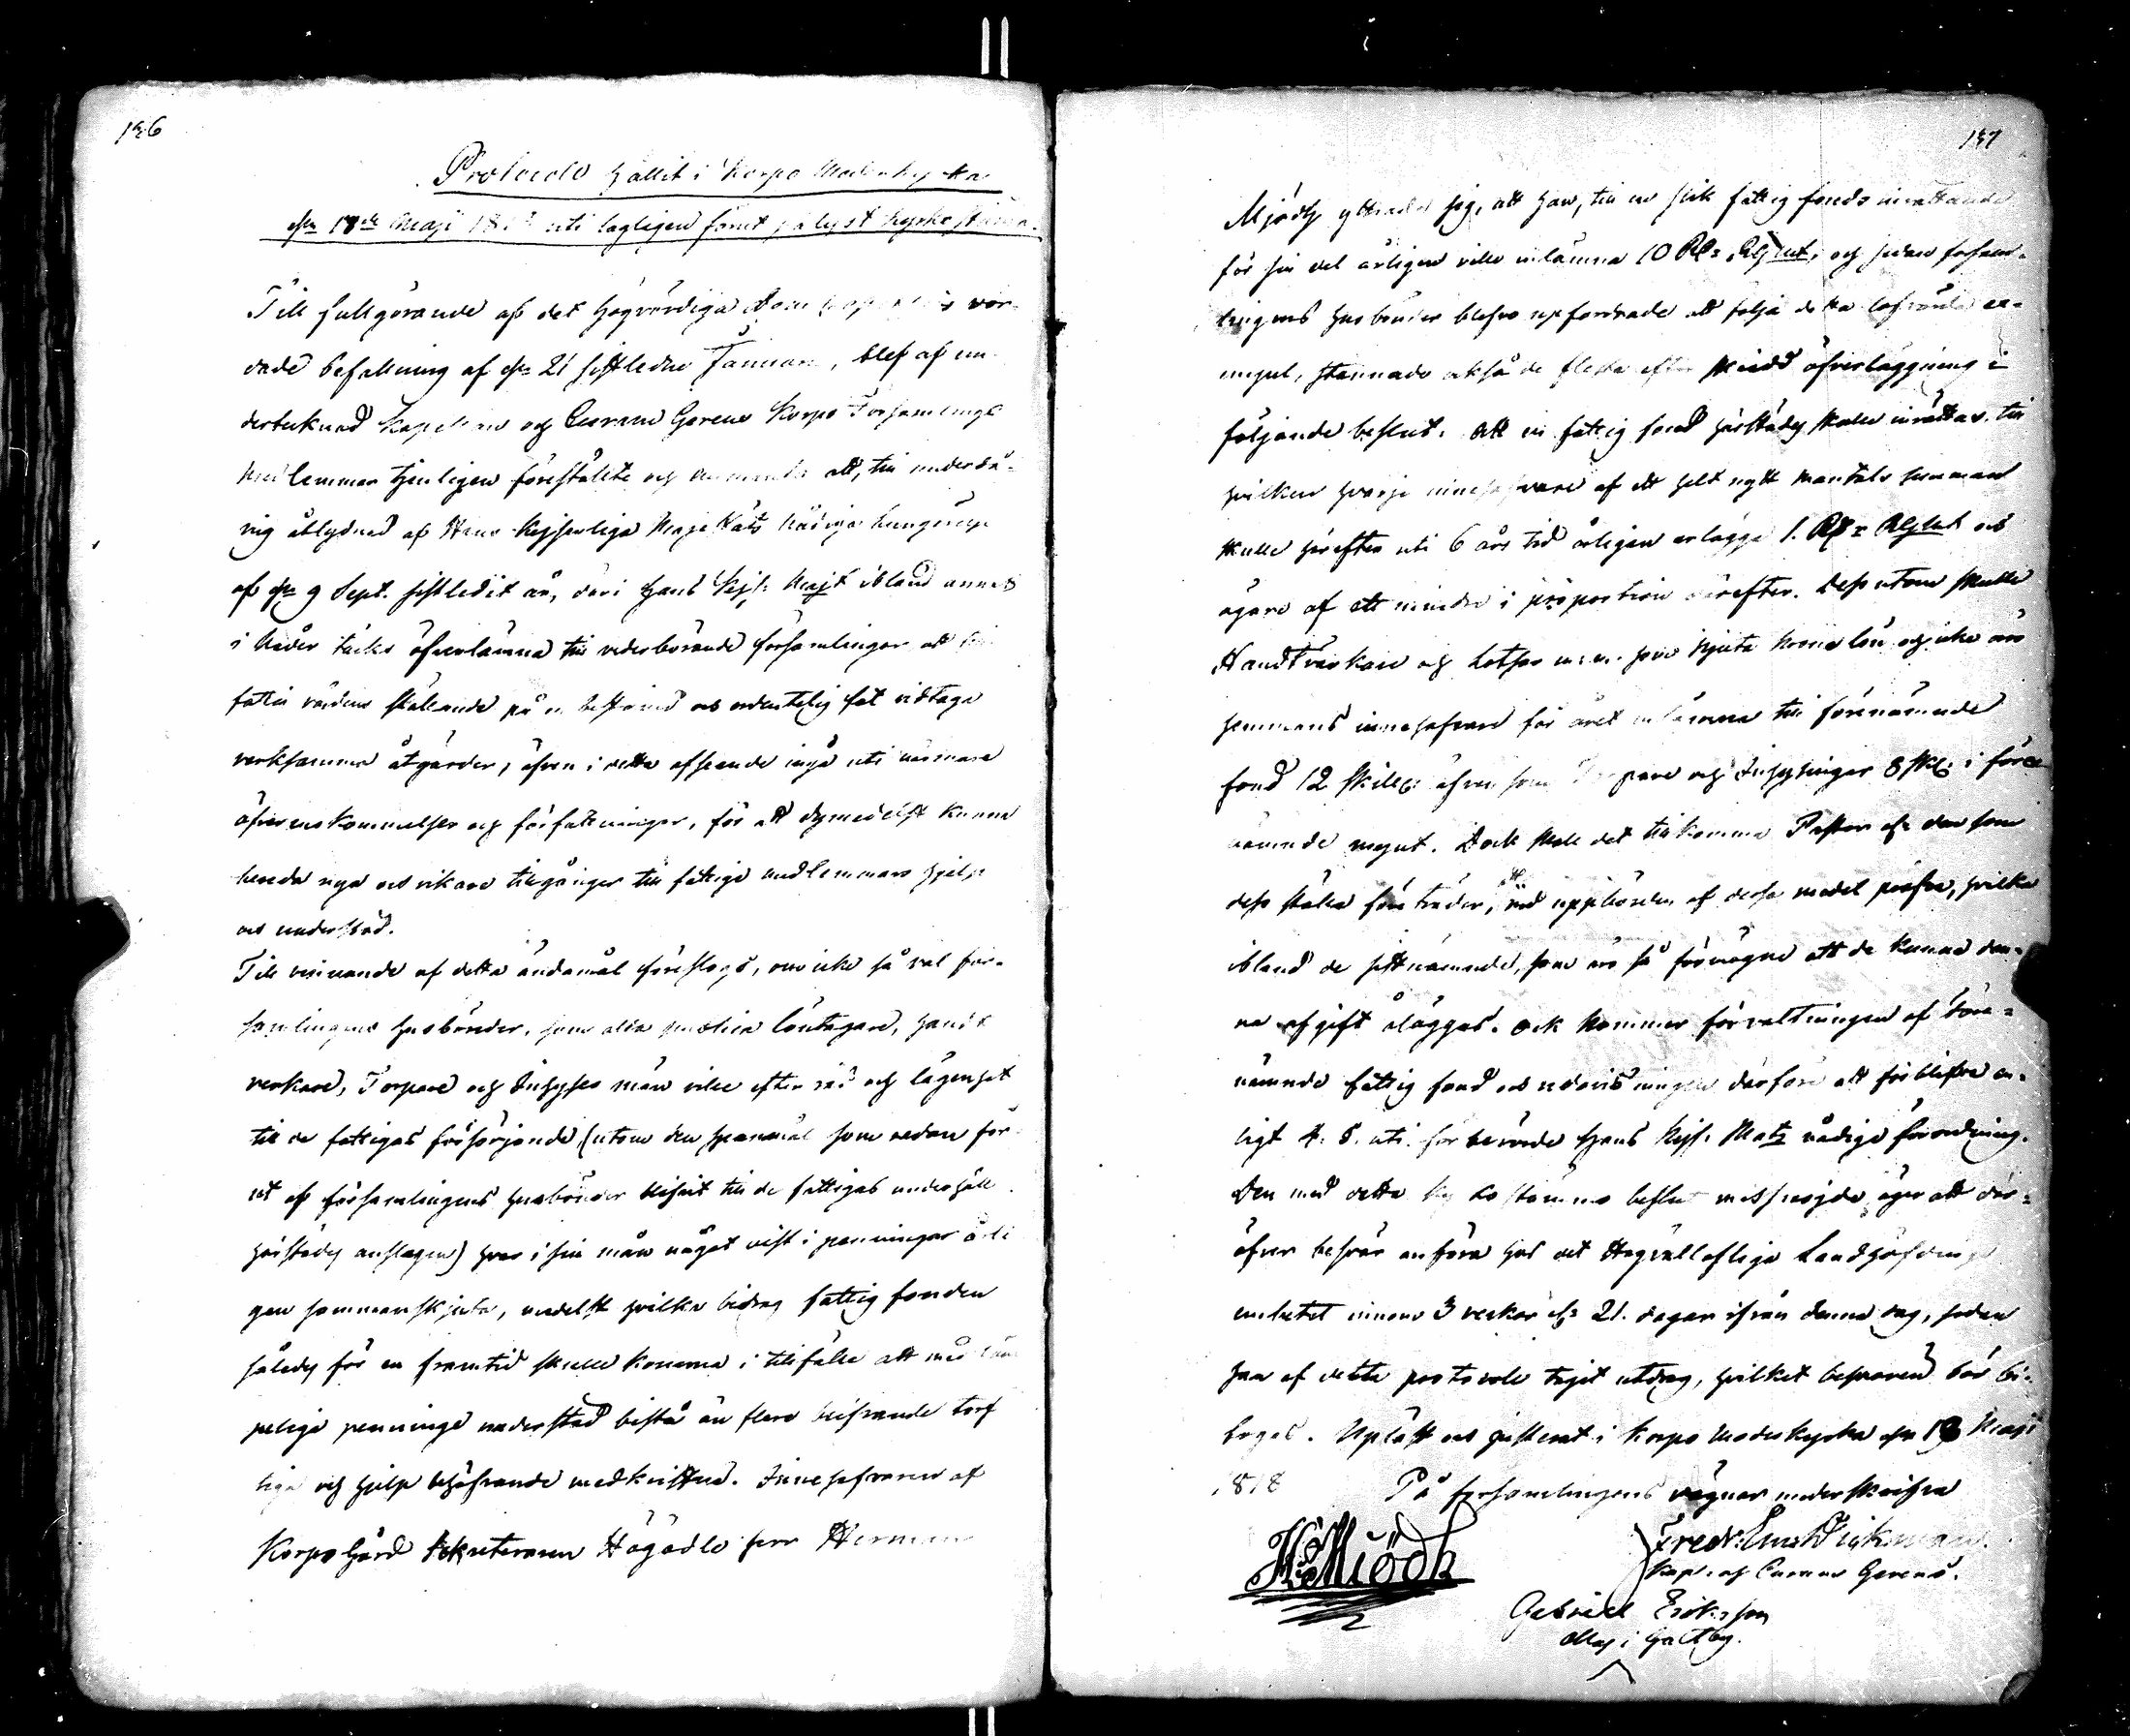 126
Protocoll hållit i Korpo Moderkyrka
den 18de Maji 1818 uti lagligen förut pålyst kyrkostämma.
Till fullgörande af det Högvördiga Dom Capitlets vör-
dade befallning af den 21 sistledne Januari, blef af un-
dertecknad Kapellan och Curam Gerens Korpo Församlings
medlemmar tjenligen föreställte och att, till underdå-
nig åtlydnad af Hans Kejserliga Majestäts Nådiga kungörelse
af den 9 Sept. sistledit år, däri Hans Kejs. Majt ibland annat
i Nåder täckts öfverlämna till vederbörande församlingar att
fattig vårdens ställande på en bestämd och ordentelig fot vidtaga
verksamma åtgärder, äfven i detta afseende ingå uti närmare
öfverenskommelser och författningar, för att dymedelst kunna
bereda nya och rikare tillgångar till fattige medlemmars hjelp
och understöd.
Till vinnande af detta ändamål föreslogs, om icke så väl för-
samlingens husbönder, som alla publica löntagare, handt
verkare, Torpare och Inhyses män ville efter råd och lägenhet
till de fattigas försörjande, (utom den spannmål som redan för
ut af församlingens husbönder blifvit till de fattigas underhåll
härstädes anslagen) hvar i sin mån något visst i penningar årli
gen sammanskjuta, medelst hvilka bidrag fattig fonden
således för en framtid skulle komma i tillfälle att med
pelige penninge understöd bistå än flere blifvande torf
tige och hjelp behöfvande medkristna. Innehafvaren af
Korpo Gård Sekreteraren Högädle herr Herman
127
Mjödh yttrade sig, att han, till en slik fattig fonds inrättande
för sin del årligen ville inlämna 10 Rd: Rgsmt, och sedan försam-
lingens husbönder blefvo upfordrade att följa detta lofvärda ex-
empel, stannade också de fleste efter skedd öfverläggning i
följande beslut. Att en fattig fond härstädes skulle inrättas, till
hvilken hvarje innehafvare af ett helt nytt mantals hemman
skulle härefter uti 6 års tid årligen erlägga 1. Rd: Rgsmt och
ägare af ett mindre i proportion därefter. Dessutom skulle
Handtverkare och Lotsar m.m. som njuta krono lön och icke äro
hemmans innehafvare för året inlämna till förenämnde
fond 12 skill: äfven som Torpare och Inhysingar 8 sk: i före
nämnde mynt. Dock skall det tillkomma Pastor eller den som
dess ställe företräder, att vid uppbörden af dessa medel pröfva, hvilka
ibland de sistnämnde, som äro så förmögne att de kunna den-
na afgift åläggas. Ock kommer förvaltningen af före-
nämnde fattig fond och redovisningen därföre att förblifva en-
ligt 4. §. uti förberörde Hans Kejs. Mats nådige förordning.
Den med detta kyrko stämmo beslut missnöjde äger att där-
öfver besvär anföra hos det Högvällofliga Landshöfdinge
embetet innom 3 veckor eller 21. dagar ifrån denna dag, sedan
han af detta protocoll tagit utdrag, hvilket besvären bör bi-
fogas. Upläst och justerat i Korpo Moderkyrka den 18 Maji
1818 På församlingens vägnar underskrifva
H Mjödh
Fredr. Emr.
Kap. och Curam Gerens.
Gabriel Eriksson
i Galtby.